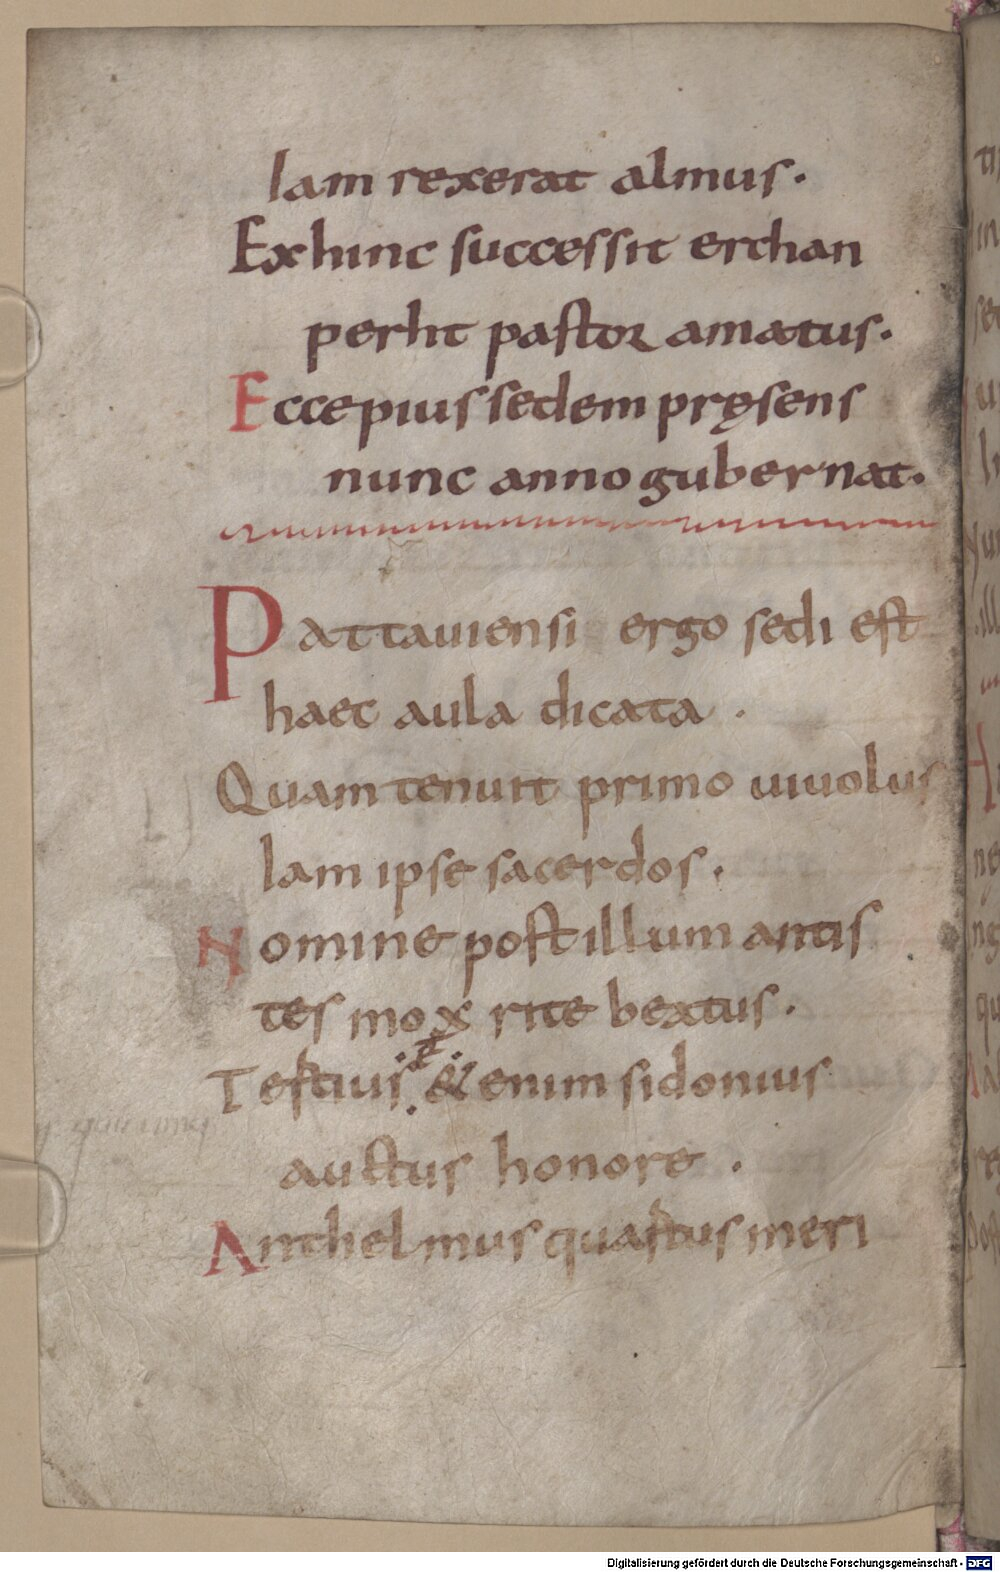 lam rexerat almus.
Exhinc successit erchan
perht pastor amatus.
Ecce pius sedem pręsens
nunc anno gubernat.
Pattauiensi ergo sedi est
haec aula dicata .
Quam tenuit primo uiuolus
lam ipse sacerdos.
Nomine post illum antis
tes mox rite bextus.
Testiuis & enim sidonius
auctus honore .
Anthelmus quartus meri
Digitalisierung gefördert durch die Deutsche Forschungsgemeinschaft - DFG